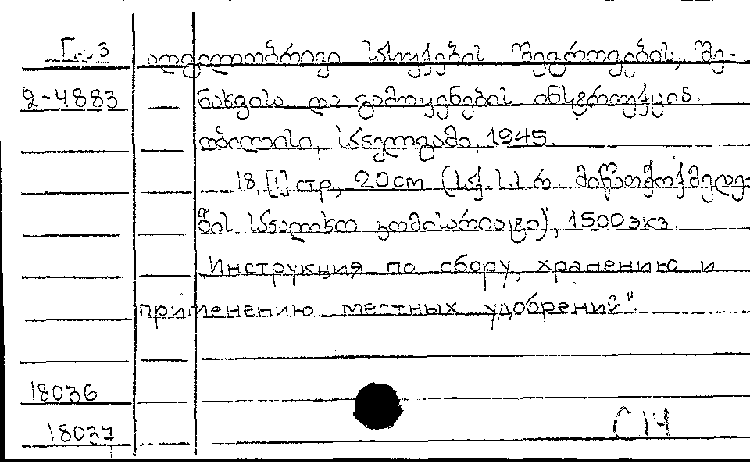 ადგილობრივი სასუქების შეგროვების, შე-
2-4883 ნახვისა და გამოყენების ინსტრუქცია.
თბილისი, სახელგამი, 1945.
18, [1] стр, 20 см (ს.ს.ს.რ. მიწათმოქმედე-
ბის სახალხო კომისარიატი), 1500 экз.
"Инструкция по сбору, хранению и
применению местных удобрений".
18036
18037